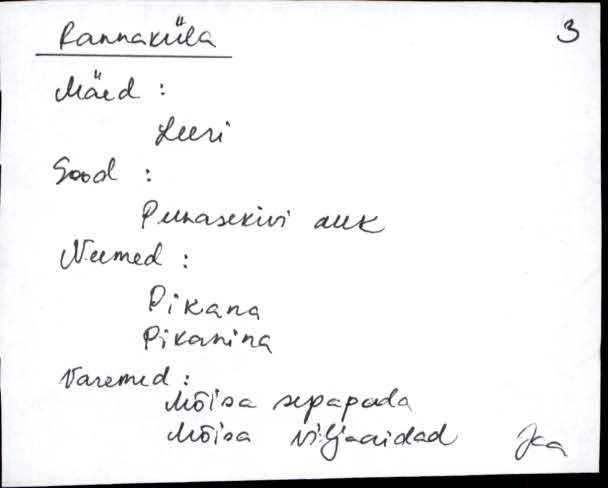 Rannaküla 3
Mäed :
Leeri
Sood :
Punasekivi auk
Neemed :
Pikana
Pikanina
Varemed :
Mõisa sepapada
Mõisa viljaaidad